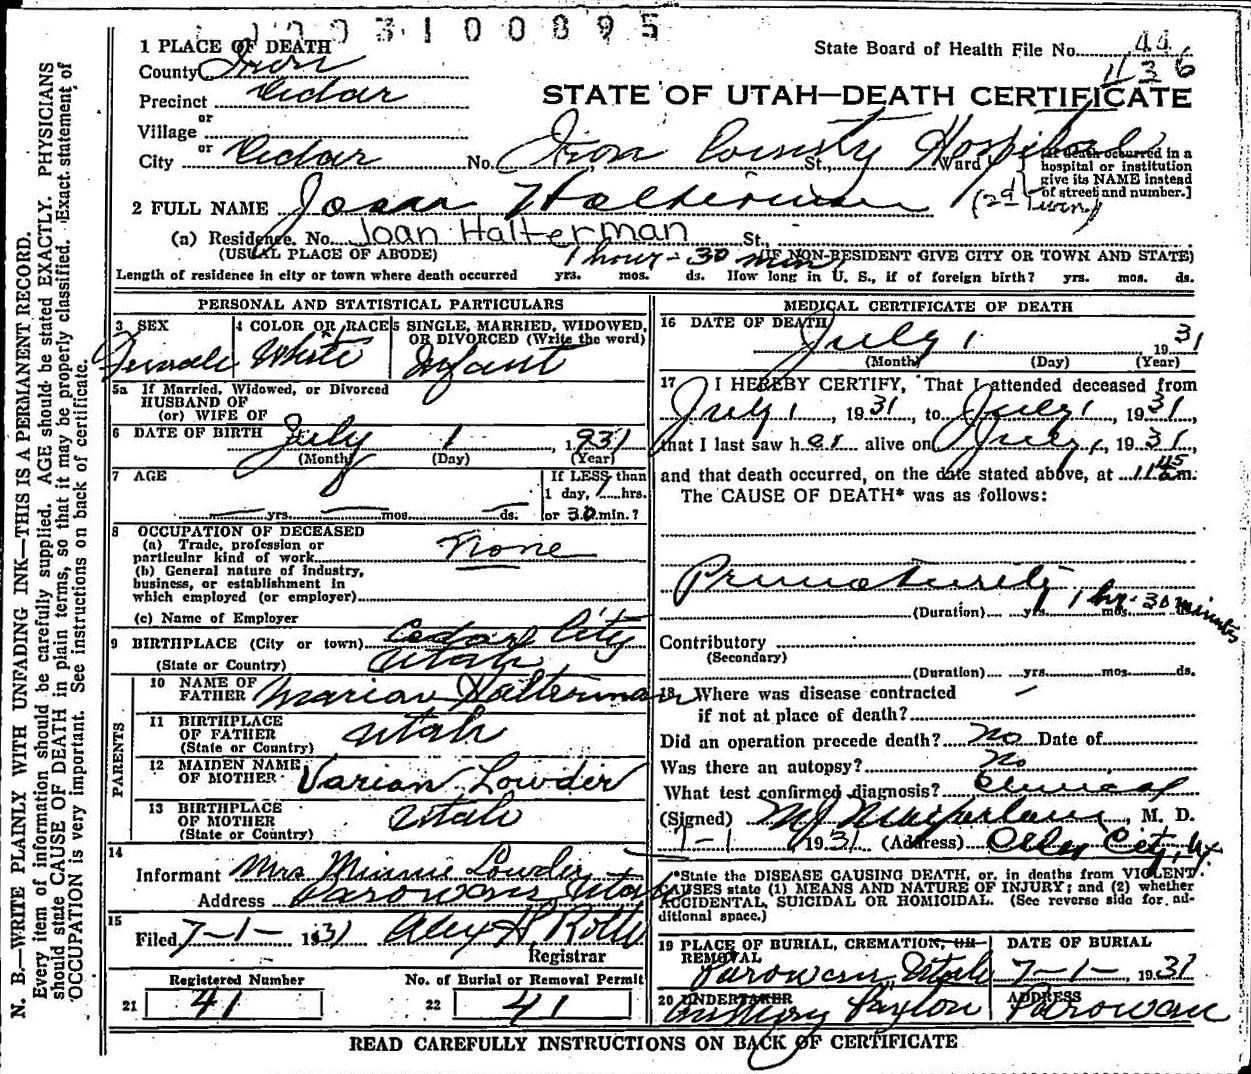 1003100895
1 PLACE OF DEATH
State Board of Health File No. 44
County Iron
1136
Precinct Cedar
STATE OF UTAH—DEATH CERTIFICATE
or
Village
or
City Cedar No. Iron County Hospital St., Ward
[If death occurred in a hospital or institution give its NAME instead of street and number.]
2 FULL NAME Joan Halterman (2d twin)
(a) Residence. No. Joan Halterman St.,
(USUAL PLACE OF ABODE) 1 hour - 30 min (IF NON-RESIDENT GIVE CITY OR TOWN AND STATE)
Length of residence in city or town where death occurred yrs. mos. ds. How long in U. S., if of foreign birth? yrs. mos. ds.
PERSONAL AND STATISTICAL PARTICULARS
3 SEX Female
4 COLOR OR RACE White
5 SINGLE, MARRIED, WIDOWED, OR DIVORCED (Write the word) Infant
5a If Married, Widowed, or Divorced
HUSBAND OF
(or) WIFE OF
6 DATE OF BIRTH July 1 1931
(Month) (Day) (Year)
7 AGE — yrs. — mos. — ds.
If LESS than
1 day, 1 hrs.
or 30 min.?
8 OCCUPATION OF DECEASED
(a) Trade, profession or
particular kind of work None
(b) General nature of industry,
business, or establishment in
which employed (or employer)
(c) Name of Employer
9 BIRTHPLACE (City or town) Cedar City
(State or Country) Utah
PARENTS
10 NAME OF FATHER Marion Halterman
11 BIRTHPLACE OF FATHER (State or Country) Utah
12 MAIDEN NAME OF MOTHER Varian Lowder
13 BIRTHPLACE OF MOTHER (State or Country) Utah
14
Informant Mrs Minnie Lowder
Address Parowan, Utah
15
Filed 7-1- 1931 Alex H Rolle
Registrar
Registered Number
21 41
No. of Burial or Removal Permit
22 41
MEDICAL CERTIFICATE OF DEATH
16 DATE OF DEATH July 1 1931
(Month) (Day) (Year)
17 I HEREBY CERTIFY, That I attended deceased from
July 1, 1931, to July 1, 1931,
that I last saw her alive on July 1, 1931,
and that death occurred, on the date stated above, at 11 45 a.m.
The CAUSE OF DEATH* was as follows:
Prematurity
(Duration) yrs. mos. ds. 1 hr. 30 minutes
Contributory
(Secondary)
(Duration) yrs. mos. ds.
18 Where was disease contracted
if not at place of death? —
Did an operation precede death? No Date of
Was there an autopsy? No
What test confirmed diagnosis? Clinical
(Signed) M J Macfarlane, M. D.
7-1- 1931 (Address) Cedar City, Ut.
*State the DISEASE CAUSING DEATH, or, in deaths from VIOLENT
CAUSES state (1) MEANS AND NATURE OF INJURY; and (2) whether
ACCIDENTAL, SUICIDAL OR HOMICIDAL. (See reverse side for additional space.)
19 PLACE OF BURIAL, CREMATION, OR REMOVAL Parowan, Utah
DATE OF BURIAL 7-1- 1931
20 UNDERTAKER Anthony Paxton
ADDRESS Parowan
READ CAREFULLY INSTRUCTIONS ON BACK OF CERTIFICATE
N. B.—WRITE PLAINLY WITH UNFADING INK—THIS IS A PERMANENT RECORD.
Every item of information should be carefully supplied. AGE should be stated EXACTLY. PHYSICIANS
should state CAUSE OF DEATH in plain terms, so that it may be properly classified. Exact statement of
OCCUPATION is very important. See instructions on back of certificate.